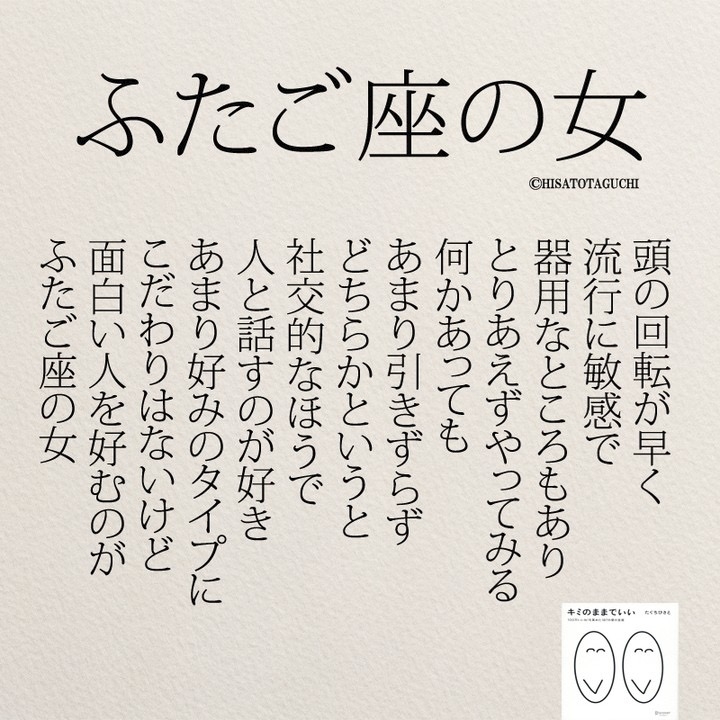 ふたご座の女
©HISATOTAGUCHI
頭の回転が早く
流行に敏感で
器用なところもあり
とりあえずやってみる
何かあっても
あまり引きずらず
どちらかというと
社交的なほうで
人と話すのが好き
あまり好みのタイプに
こだわりはないけど
面白い人を好むのが
ふたご座の女
キミのままでいい
たぐちひさと